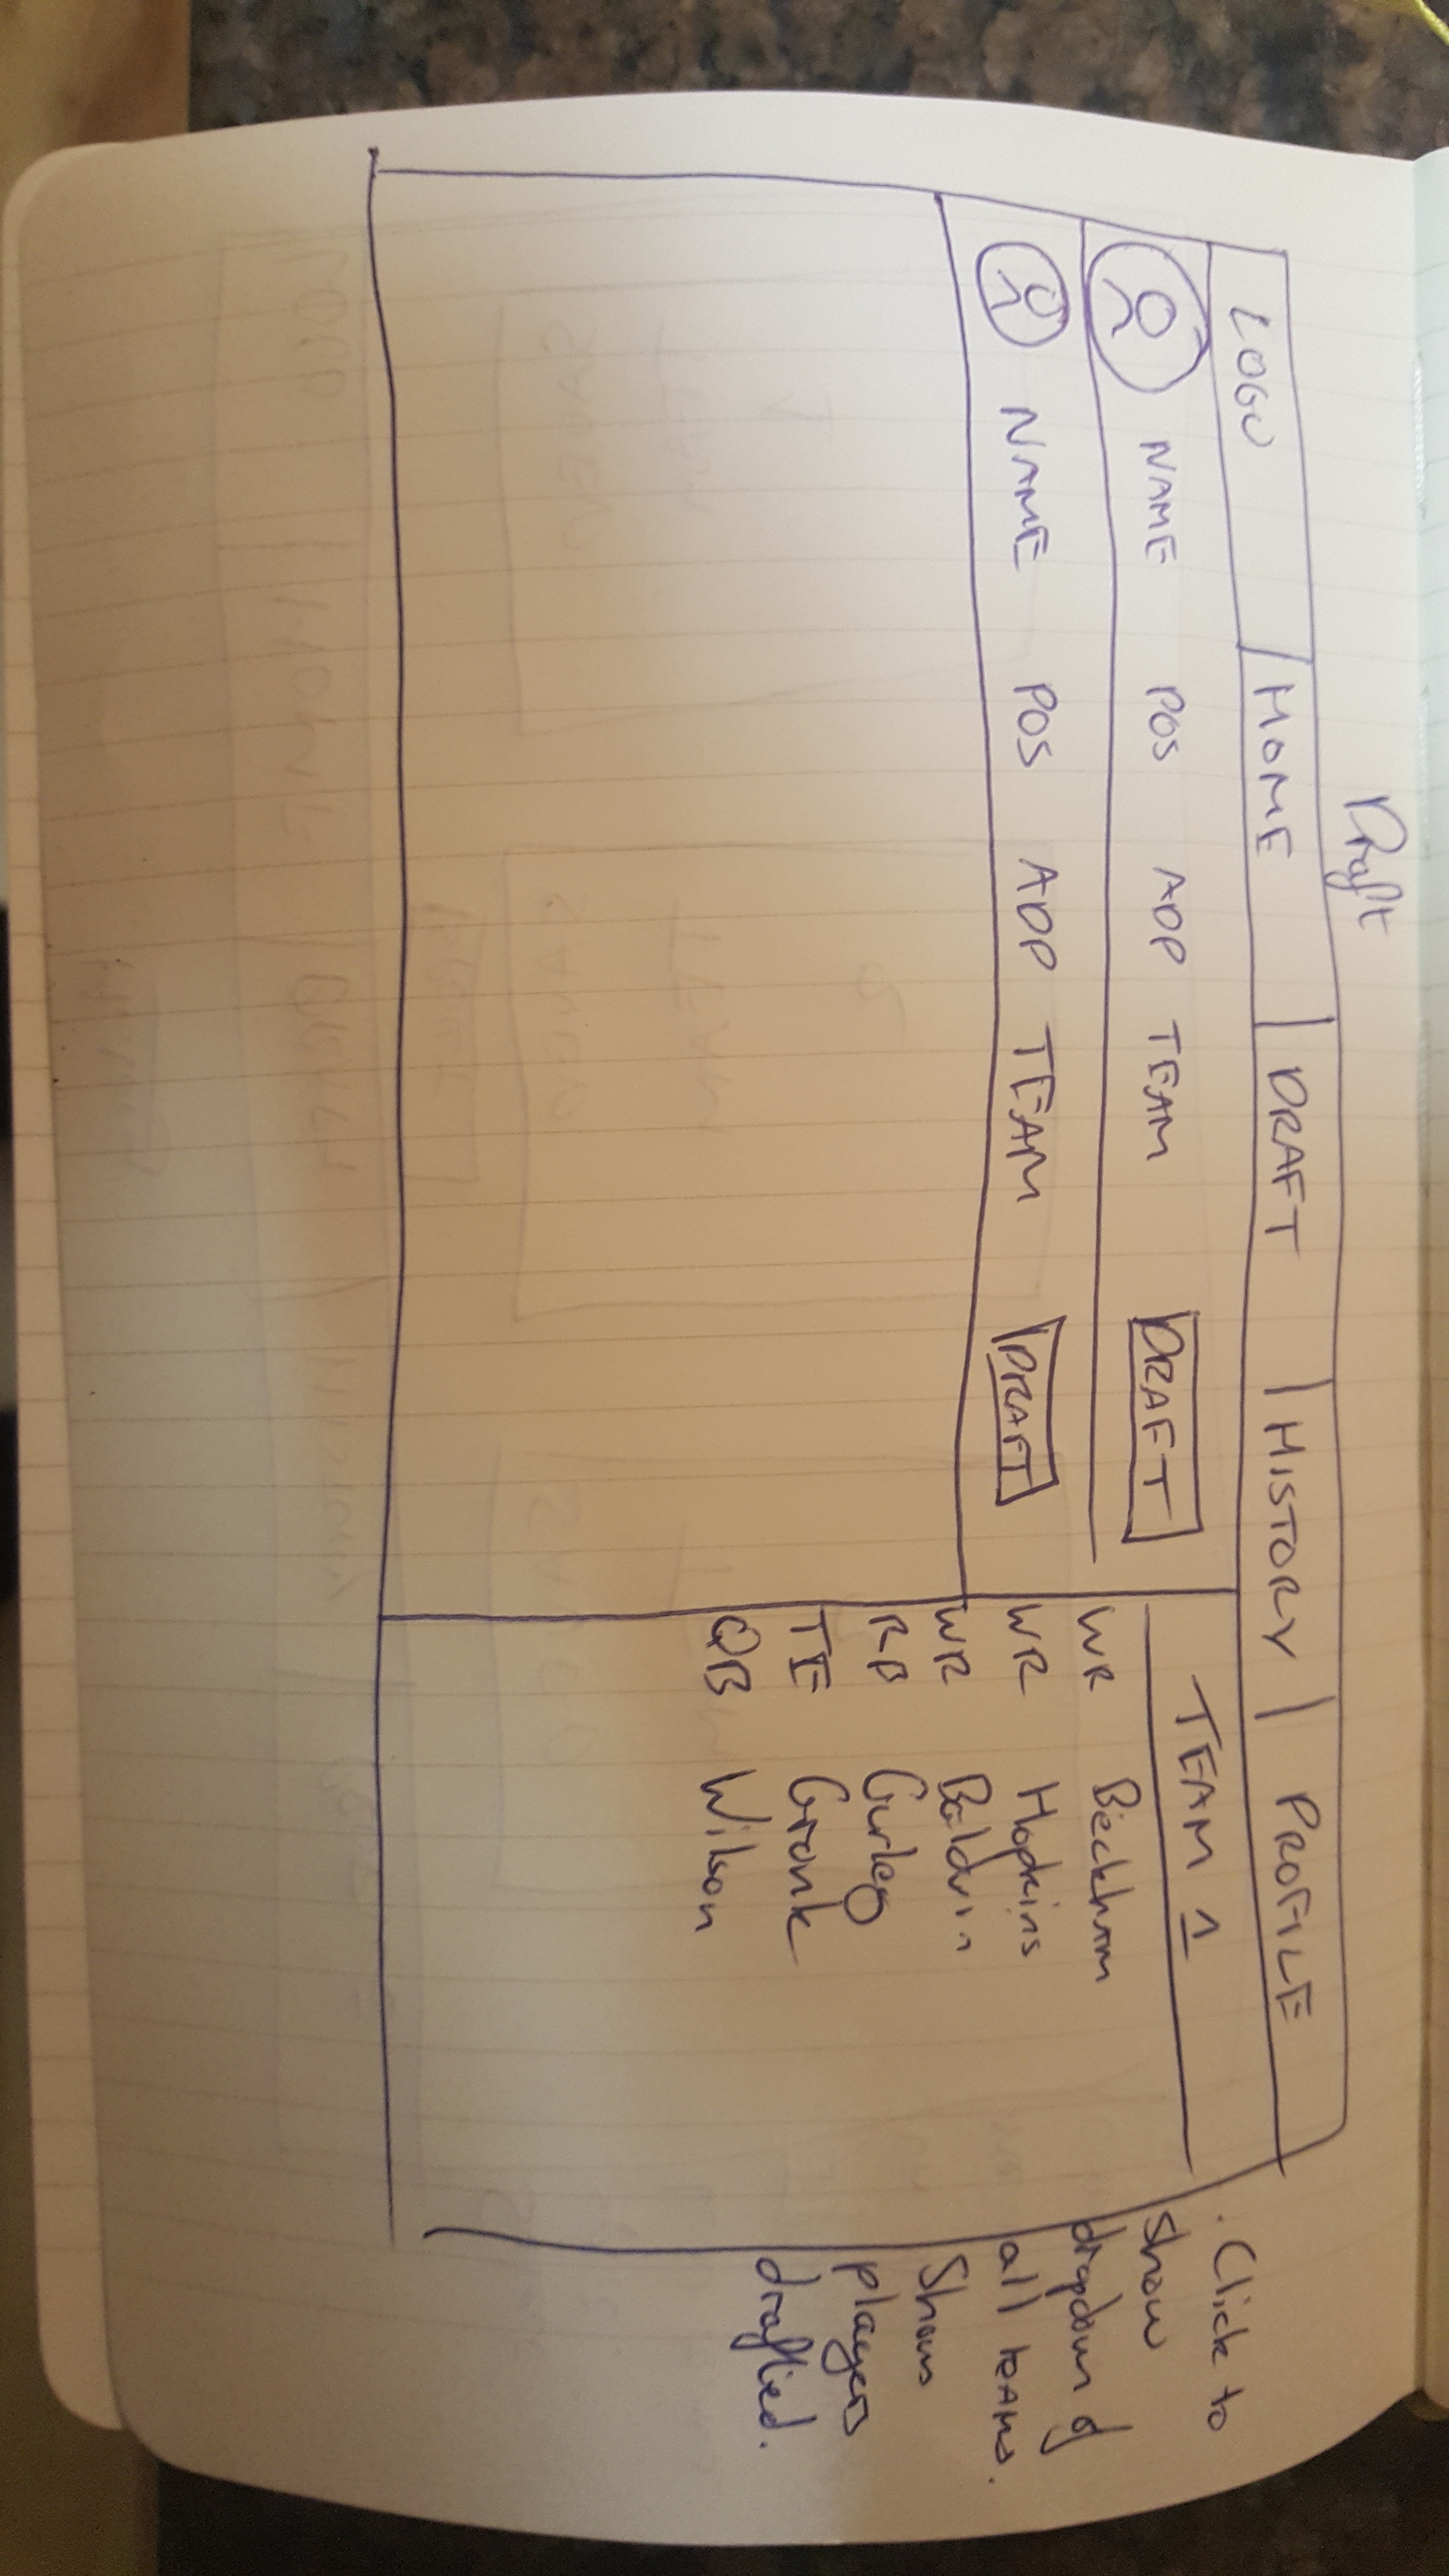 Draft
LOGO | HOME | DRAFT | HISTORY | PROFILE
NAME POS ADP TEAM DRAFT
NAME POS ADP TEAM DRAFT
TEAM 1
WR Beckham
WR Hopkins
WR Baldwin
RB Gurley
TE Gronk
QB Wilson
. Click to
show
dropdown of
all teams.
Shows
players
drafted.